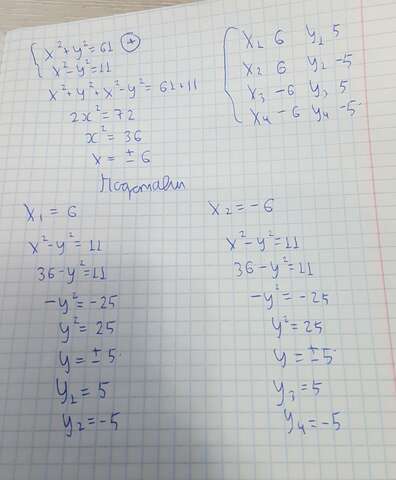 x²+y²=61 (+)
x²-y²=11
x²+y²+x²-y²=61+11
2x²=72
x²=36
x=±6
Подставим
x₁ 6 y₁ 5
x₂ 6 y₂ -5
x₃ -6 y₃ 5
x₄ -6 y₄ -5
x₁=6
x²-y²=11
36-y²=11
-y²=-25
y²=25
y=±5
y₁=5
y₂=-5
x₂=-6
x²-y²=11
36-y²=11
-y²=-25
y²=25
y=±5
y₃=5
y₄=-5